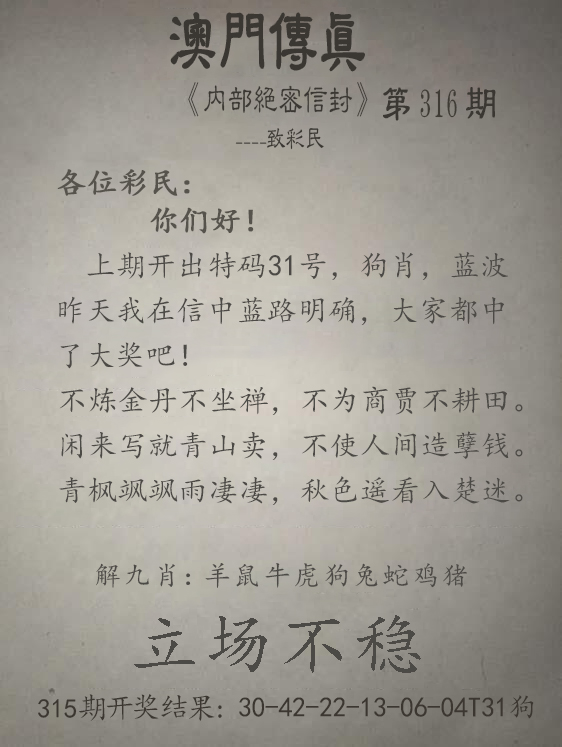 澳門傳眞
《内部絕密信封》第316期
----致彩民
各位彩民：
你们好！
上期开出特码31号，狗肖，蓝波
昨天我在信中蓝路明确，大家都中
了大奖吧！
不炼金丹不坐禅，不为商贾不耕田。
闲来写就青山卖，不使人间造孽钱。
青枫飒飒雨凄凄，秋色遥看入楚迷。
解九肖：羊鼠牛虎狗兔蛇鸡猪
立场不稳
315期开奖结果：30-42-22-13-06-04T31狗